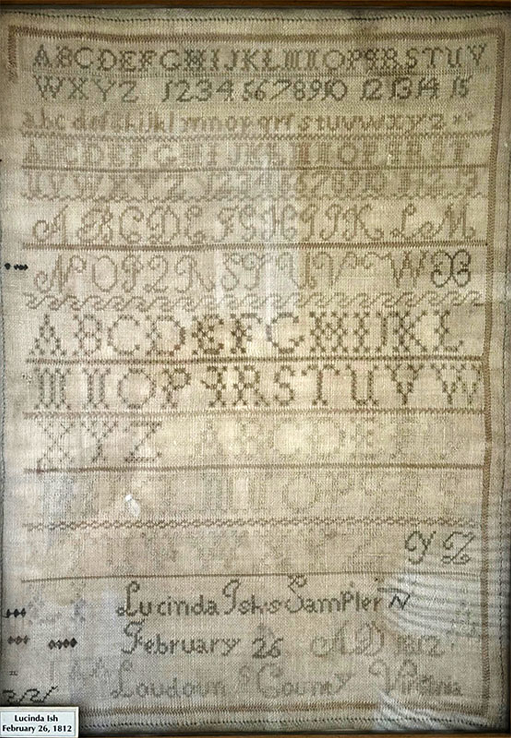 ABCDEFGHIJKLMNOPQRSTUV
WXYZ 12345678910 12 13 14 15
abc defghijkl mnopqrſstuvwxyz
ABCDEFGHIJKLMNOPQRST
UVWXYZ 12345678910 11 12 13
ABCDEFGHIJKLM
NOPQRSTUVWX
ABCDEFGHIJKL
MNOPQRSTUVW
XYZ ABCDEFHI
KLMNOPQRS
YZ
Lucinda Ish's Sampler
February 26 AD 1812
Loudoun County Virginia
Lucinda Ish
February 26, 1812